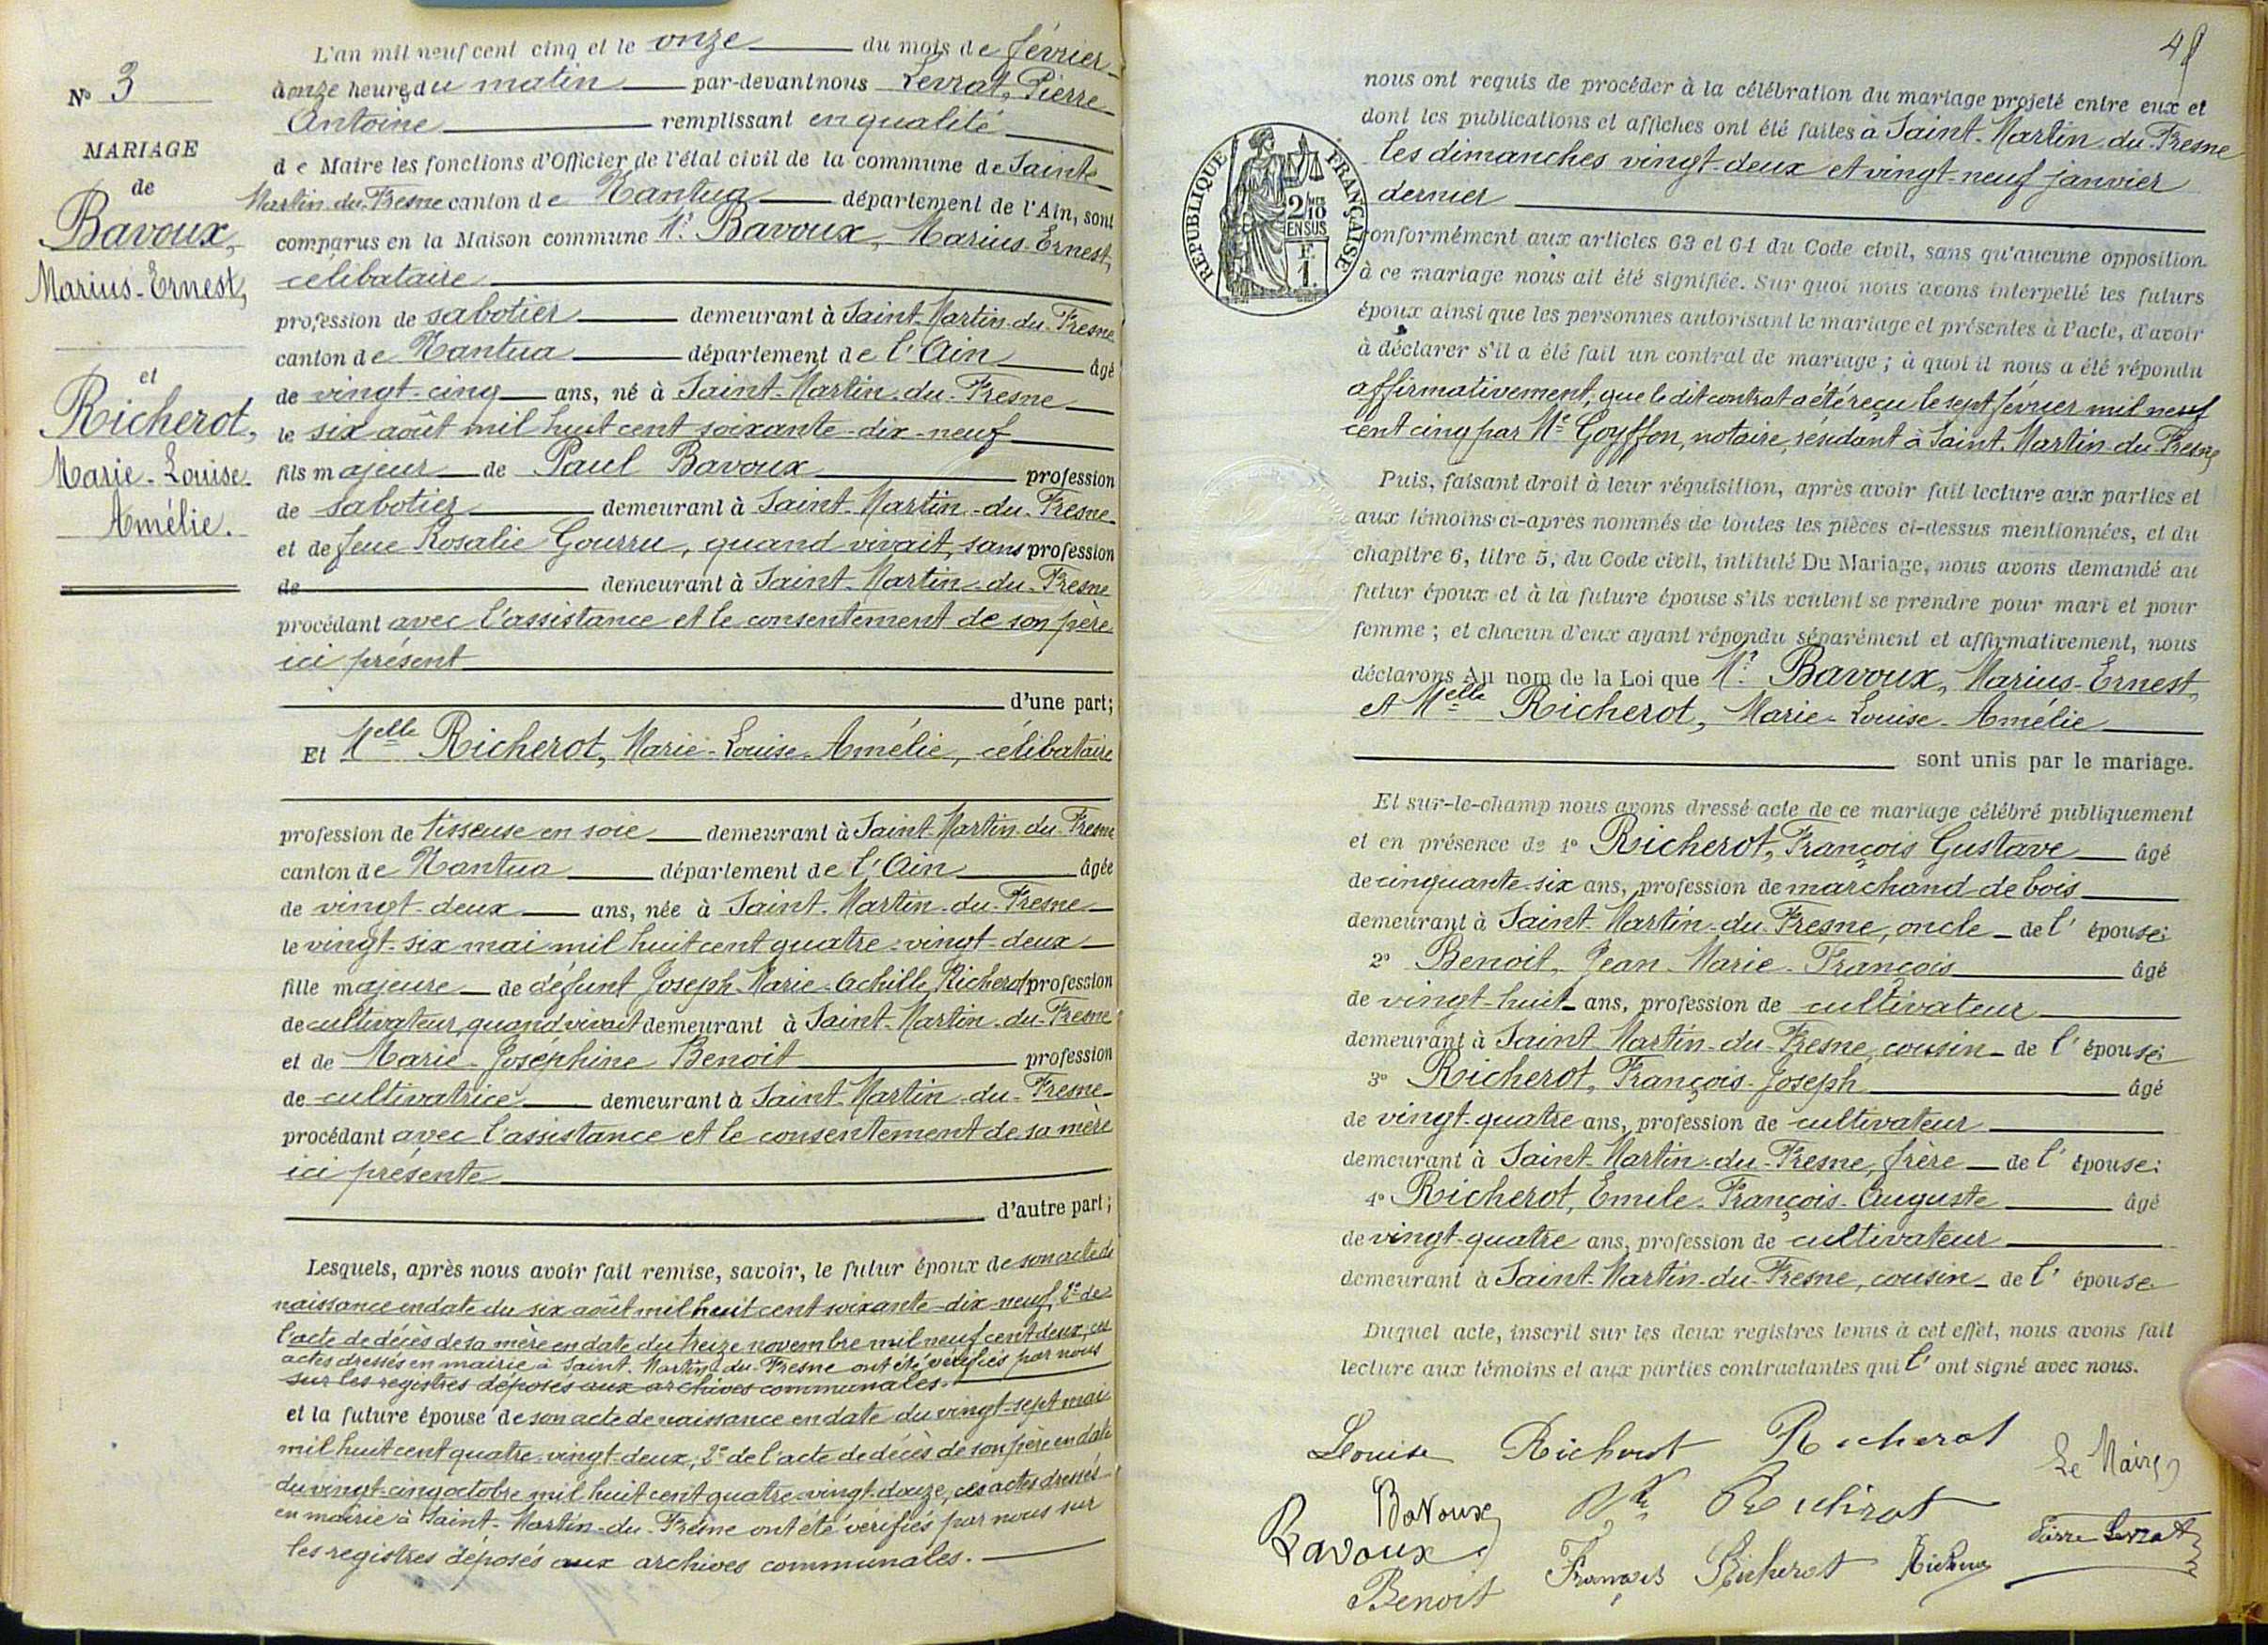 N° 3
MARIAGE
de
Bavoux,
Marius-Ernest,
et
Richerot,
Marie-Louise-
Amélie.
L'an mil neuf cent cinq et le onze du mois de février
à onze heures du matin par-devant nous Levrat, Pierre
Antoine remplissant en qualité
de Maire les fonctions d'Officier de l'état civil de la commune de Saint-
Martin-du-Fresne canton de Nantua département de l'Ain, sont
comparus en la Maison commune Mr. Bavoux, Marius-Ernest,
célibataire
profession de sabotier demeurant à Saint-Martin-du-Fresne
canton de Nantua département de l'Ain âgé
de vingt-cinq ans, né à Saint-Martin-du-Fresne
le six août mil huit cent soixante-dix-neuf
fils majeur de Paul Bavoux profession
de sabotier demeurant à Saint-Martin-du-Fresne
et de feue Rosalie Gourru, quand vivait, sans profession
de demeurant à Saint-Martin-du-Fresne
procédant avec l'assistance et le consentement de son père
ici présent
d'une part;
Et Melle Richerot, Marie-Louise-Amélie, célibataire
profession de tisseuse en soie demeurant à Saint-Martin-du-Fresne
canton de Nantua département de l'Ain âgée
de vingt-deux ans, née à Saint-Martin-du-Fresne
le vingt-six mai mil huit cent quatre-vingt-deux
fille majeure de défunt Joseph-Marie-Achille Richerot profession
de cultivateur, quand vivait demeurant à Saint-Martin-du-Fresne
et de Marie-Joséphine Benoit profession
de cultivatrice demeurant à Saint-Martin-du-Fresne
procédant avec l'assistance et le consentement de sa mère
ici présente
d'autre part;
Lesquels, après nous avoir fait remise, savoir, le futur époux de son acte de
naissance en date du six août mil huit cent soixante-dix-neuf, 2° de
l'acte de décès de sa mère en date du treize novembre mil neuf cent deux, ces
actes dressés en mairie à Saint-Martin-du-Fresne ont été vérifiés par nous
sur les registres déposés aux archives communales.
et la future épouse de son acte de naissance en date du vingt-sept mai
mil huit cent quatre-vingt-deux, 2° de l'acte de décès de son père en date
du vingt-cinq octobre mil huit cent quatre-vingt-douze, ces actes dressés
en mairie à Saint-Martin-du-Fresne ont été vérifiés par nous sur
les registres déposés aux archives communales.
nous ont requis de procéder à la célébration du mariage projeté entre eux et
dont les publications et affiches ont été faites à Saint-Martin-du-Fresne
les dimanches vingt-deux et vingt-neuf janvier
dernier
RÉPUBLIQUE FRANÇAISE
2/10 MES
EN SUS
F.
1.
conformément aux articles 63 et 64 du Code civil, sans qu'aucune opposition
à ce mariage nous ait été signifiée. Sur quoi nous avons interpellé les futurs
époux ainsi que les personnes autorisant le mariage et présentes à l'acte, d'avoir
à déclarer s'il a été fait un contrat de mariage; à quoi il nous a été répondu
affirmativement, que le dit contrat a été reçu le sept février mil neuf
cent cinq par Me Goyffon, notaire, résidant à Saint-Martin-du-Fresne
Puis, faisant droit à leur réquisition, après avoir fait lecture aux parties et
aux témoins ci-après nommés de toutes les pièces ci-dessus mentionnées, et du
chapitre 6, titre 5, du Code civil, intitulé Du Mariage, nous avons demandé au
futur époux et à la future épouse s'ils veulent se prendre pour mari et pour
femme; et chacun d'eux ayant répondu séparément et affirmativement, nous
déclarons Au nom de la Loi que Mr. Bavoux, Marius-Ernest,
et Melle Richerot, Marie-Louise-Amélie
sont unis par le mariage.
Et sur-le-champ nous avons dressé acte de ce mariage célébré publiquement
et en présence de 1° Richerot, François Gustave âgé
de cinquante-six ans, profession de marchand de bois
demeurant à Saint-Martin-du-Fresne, oncle de l'épouse;
2° Benoit, Jean-Marie-François âgé
de vingt-huit ans, profession de cultivateur
demeurant à Saint-Martin-du-Fresne, cousin de l'épouse;
3° Richerot, François-Joseph âgé
de vingt-quatre ans, profession de cultivateur
demeurant à Saint-Martin-du-Fresne, frère de l'épouse;
4° Richerot, Emile-François-Auguste âgé
de vingt-quatre ans, profession de cultivateur
demeurant à Saint-Martin-du-Fresne, cousin de l'épouse
Duquel acte, inscrit sur les deux registres tenus à cet effet, nous avons fait
lecture aux témoins et aux parties contractantes qui l'ont signé avec nous.
Louise Richerot Richerot
Le Maire,
Bavoux Richerot
Bavoux François Richerot Pierre Levrat
Benoit